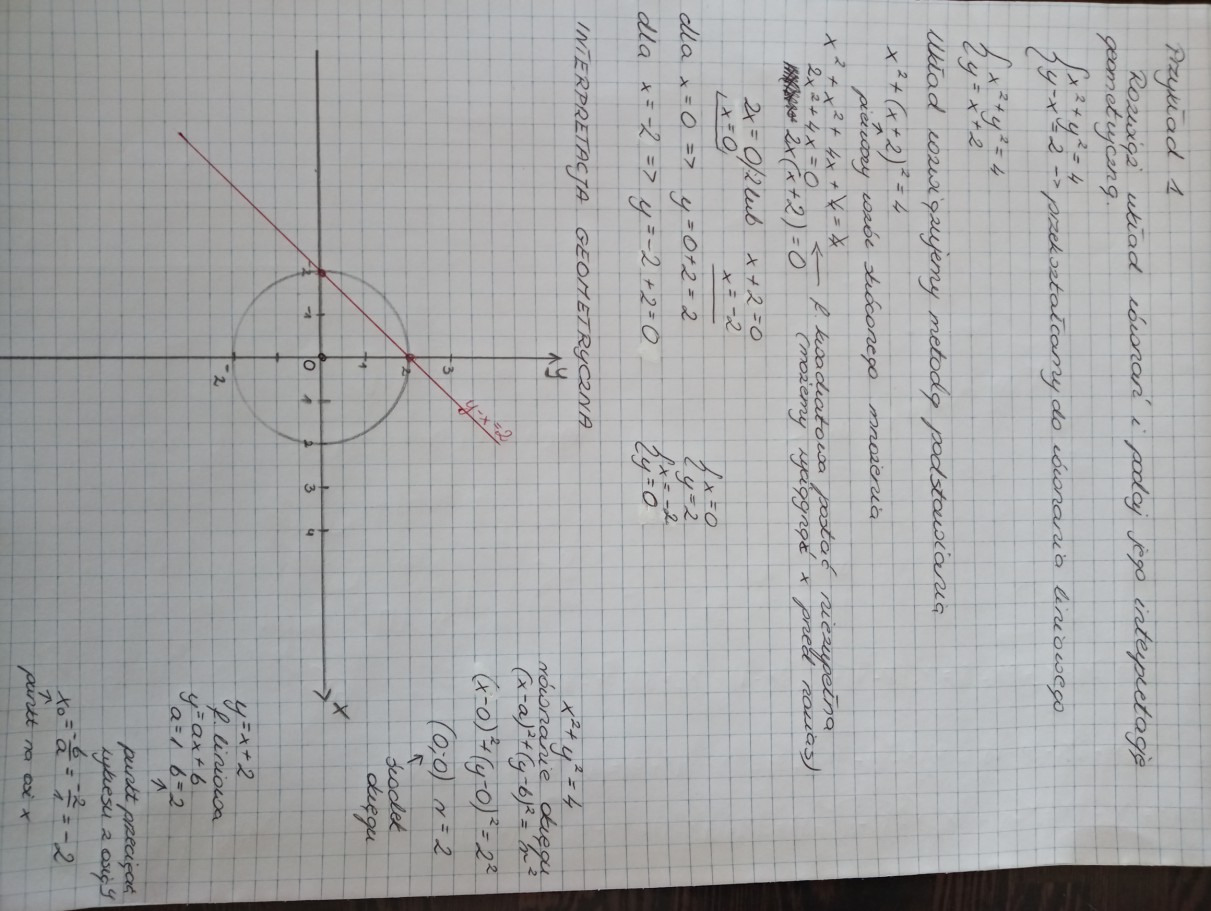 Przykład 1
Rozwiąż układ równań i podaj jego interpretację
geometryczną.
{ x²+y²=4
{ y-x=2 -> przekształcamy do równania liniowego
{ x²+y²=4
{ y=x+2
Układ rozwiązujemy metodą podstawiania
x²+(x+2)²=4
↑
pierwszy wzór skróconego mnożenia
x²+x²+4x+4=4
2x²+4x=0 ← f. kwadratowa postać niezupełna
2x(x+2)=0 (możemy wyciągnąć x przed nawias)
2x=0/2 lub x+2=0
x=0 x=-2
dla x=0 => y=0+2=2 { x=0
{ y=2
dla x=-2 => y=-2+2=0 { x=-2
{ y=0
INTERPRETACJA GEOMETRYCZNA
y
3
2
1
0
-2
-2
-1
1
2
3
4
x
y-x=2
x²+y²=4
równanie okręgu
(x-a)²+(y-b)²=r²
(x-0)²+(y-0)²=2²
(0;0) r=2
↑
środek
okręgu
y=x+2
f. liniowa
y=ax+b
a=1 b=2
↑
punkt przecięcia
wykresu z osią y
x₀=-b/a=-2/1=-2
↑
punkt na osi x